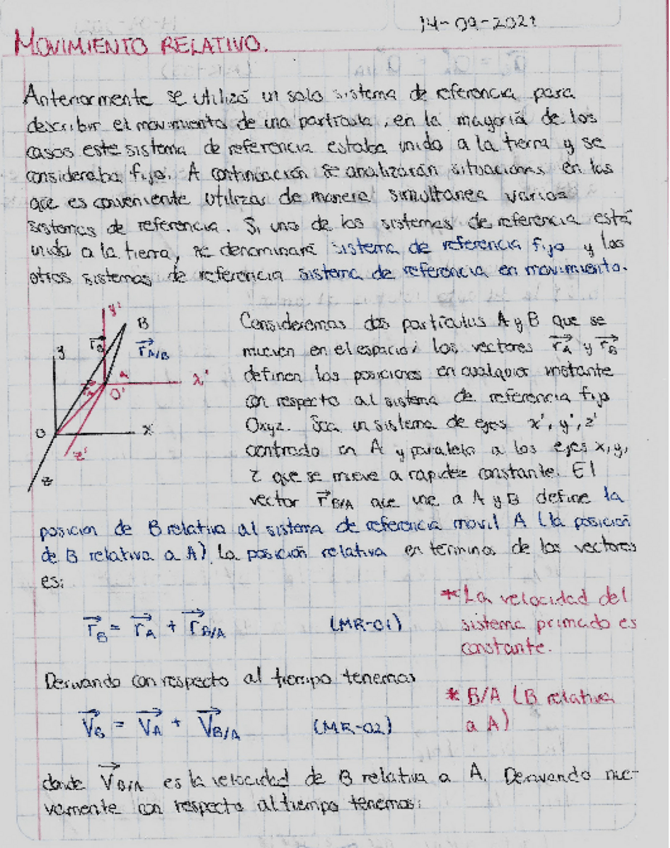 14-09-2021
MOVIMIENTO RELATIVO.
Anteriormente se utilizó un solo sistema de referencia para
describir el movimiento de una partícula, en la mayoría de los
casos este sistema de referencia estaba unido a la tierra y se
consideraba fijo. A continuación se analizarán situaciones en las
que es conveniente utilizar de manera simultanea varios
sistemas de referencia. Si uno de los sistemas de referencia está
unido a la tierra, se denominará sistema de referencia fijo y los
otros sistemas de referencia sistema de referencia en movimiento.
y'
B
y
r⃗B
r⃗A/B
A
x'
O'
r⃗A
O
x
z'
z
Consideremos dos partículas A y B que se
mueven en el espacio; los vectores r⃗A y r⃗B
definen las posiciones en cualquier instante
con respecto al sistema de referencia fijo
Oxyz. Sea un sistema de ejes x', y', z'
centrado en A y paralelo a los ejes x, y,
z que se mueve a rapidez constante. El
vector r⃗B/A que une a A y B define la
posición de B relativa al sistema de referencia movil A (la posición
de B relativa a A). La posición relativa en terminos de los vectores
es:
r⃗B = r⃗A + r⃗B/A (MR-01)
*La velocidad del
sistema primado es
constante.
Derivando con respecto al tiempo tenemos
V⃗B = V⃗A + V⃗B/A (MR-02)
* B/A (B relativa
a A)
donde V⃗B/A es la velocidad de B relativa a A. Derivando nue-
vamente con respecto al tiempo tenemos: